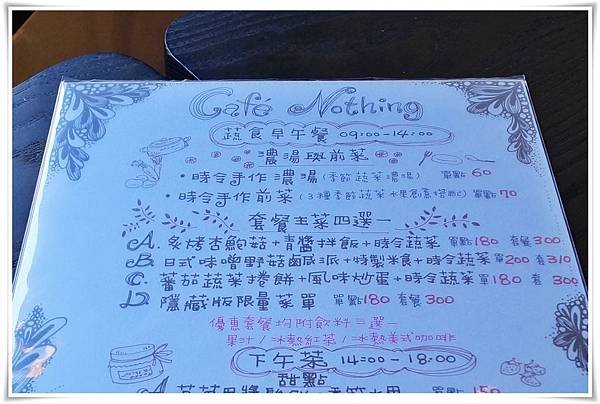 Café Nothing
蔬食早午餐 09:00-14:00
濃湯與前菜
·時令手作濃湯(季節蔬菜濃湯) 單點60
·時令手作前菜(3種季節蔬菜水果創意搭配) 單點70
套餐主菜四選一
A. 炙烤杏鮑菇+青醬拌飯+時令蔬菜 單點180 套餐300
B. 日式味噌野菇鹹派+特製米食+時令蔬菜 單200 套310
C. 蕃茄蔬菜捲餅+風味炒蛋+時令蔬菜 單180 套300
D. 隱藏版限量菜單 單點180 套餐300
優惠套餐均附飲料三選一
果汁/冰熱紅茶/冰熱美式咖啡
下午茶 14:00-18:00
甜點
150